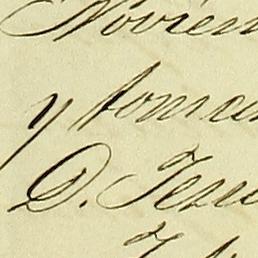 Noviem
y toma
D. Jesu